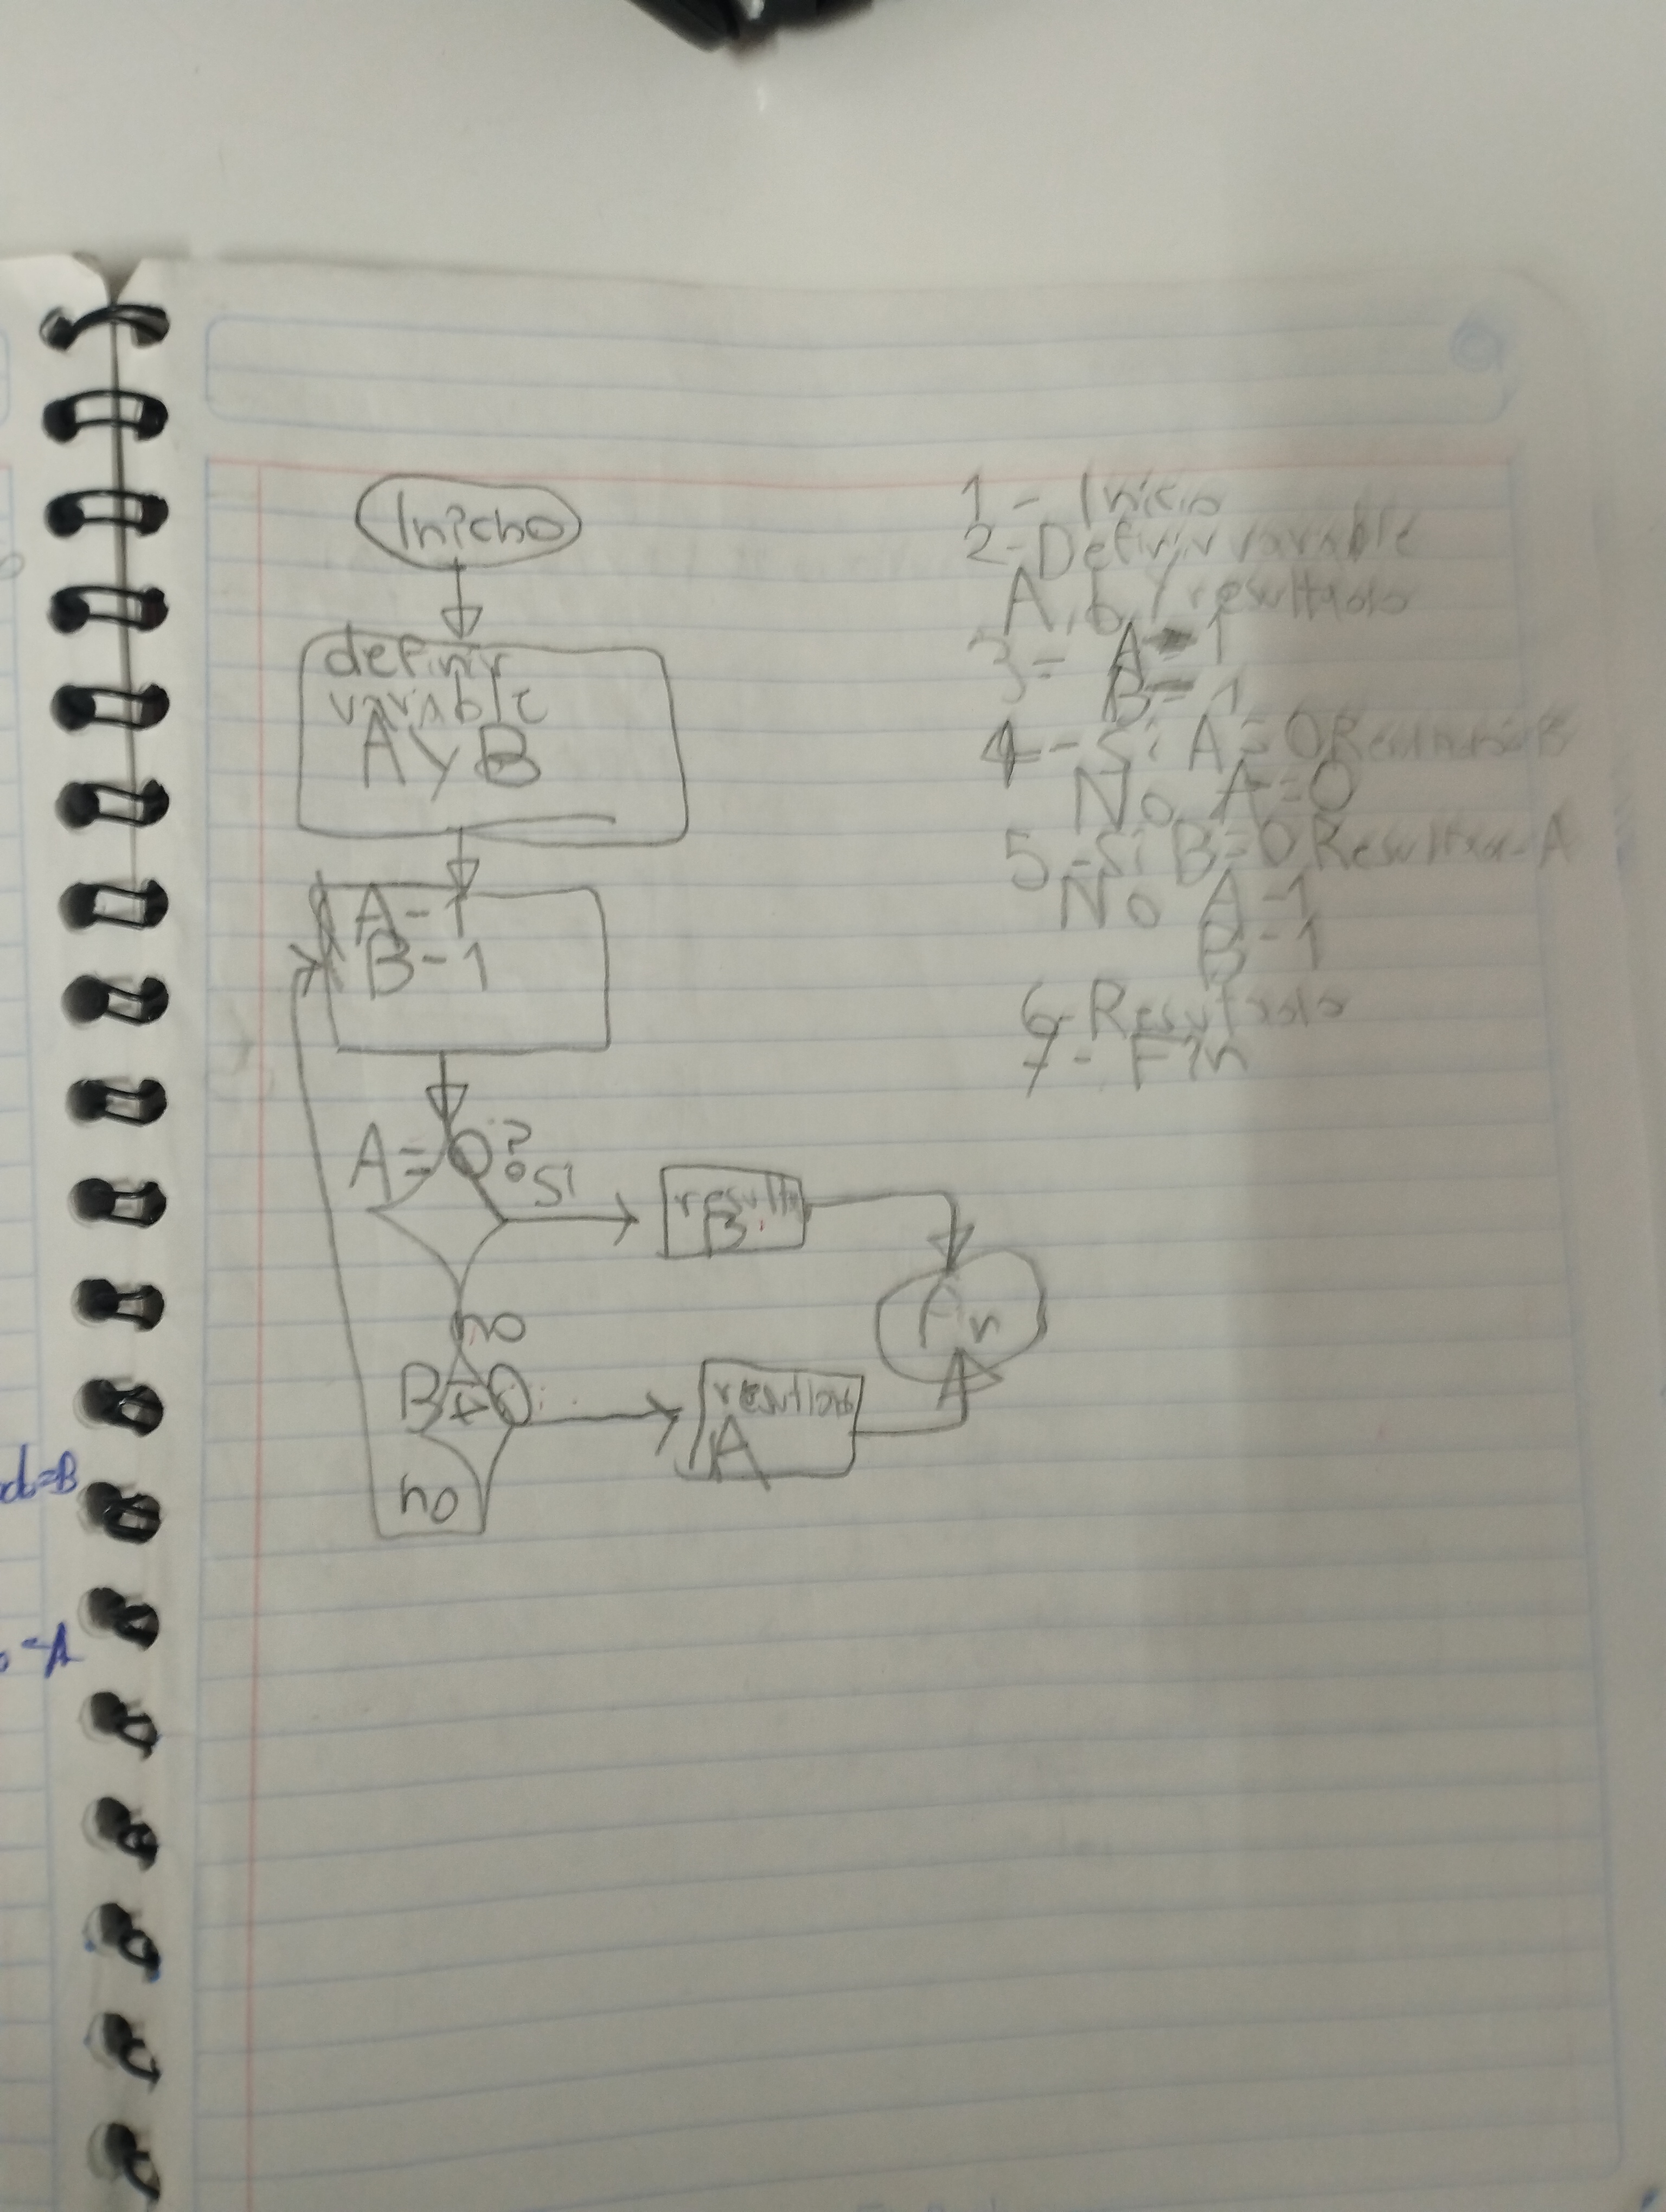 Inicio
definir
variable
A y B
A-1
B-1
A=0?
Si
result
B
no
B=0
resultado
A
no
Fin
1- Inicio
2-Definir variable
A, b, y resultado
3- A-1
B-1
4-Si A=0 Resultado B
No A=0
5-Si B=0 Resultado-A
No A-1
B-1
6-Resultado
7- Fin
do=B
=A